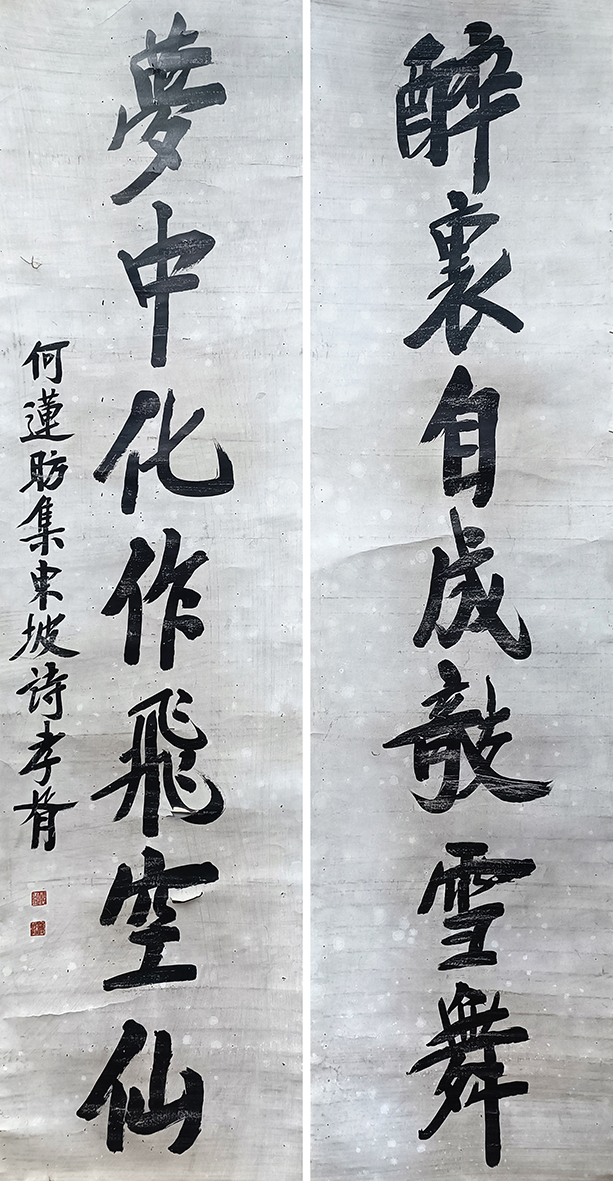 醉裏自成攲雪舞
夢中化作飛空仙
何蓮昉集東坡詩孝胥